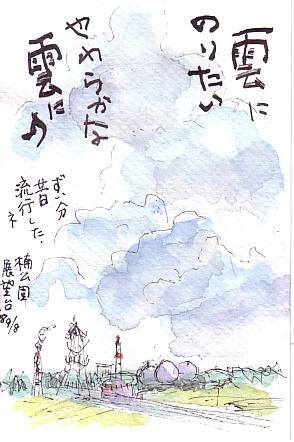 雲に
のりたい
やわらかな
雲に
ずい分
昔
流行した、
ネ
楠公園
展望台